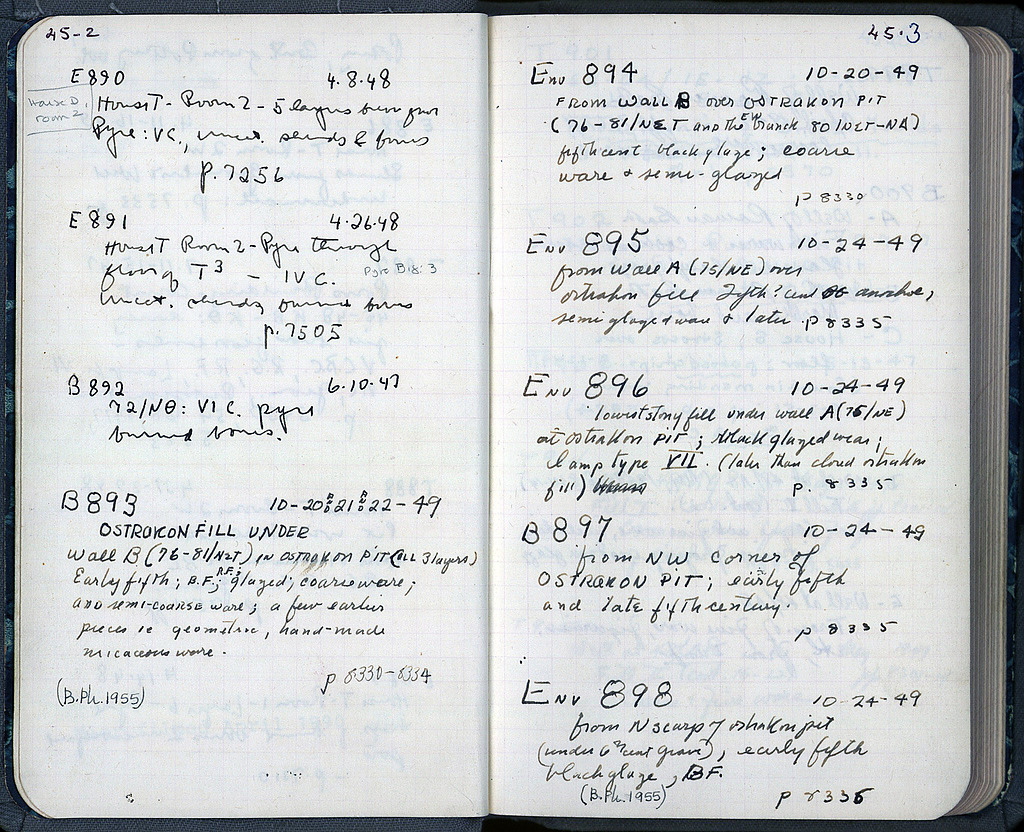 45-2
E 890 4.8.48
House D,
room 2
House T - Room 2 - 5 layers
Pyre: VC., sherds & bones
p. 7256
E 891 4.26.48
House T Room 2 - Pyre through
floor of T³ – IV C.
Pyre B 18:3
uncat. sherds, burned bones
p. 7505
B 892 6.10.47
72/ΝΘ: VI C. pyre
burned bones.
B 893 10-20 & 21 & 22-49
OSTRAKON FILL UNDER
Wall B (76-81/NET) in OSTRAKON PIT (ALL 3 layers)
Early fifth; B.F.; R.F.; glazed; coarse ware;
AND SEMI-COARSE WARE; a few earlier
pieces ie geometric, hand-made
micaceous ware.
p 8330-8334
(B.Ph. 1955)
45.3
Env 894 10-20-49
FROM WALL B over OSTRAKON PIT
(76-81/NET and the EW branch 80/NET-NA)
fifth cent black glaze; coarse
ware & semi-glazed
p 8330
Env 895 10-24-49
from Wall A (75/NE) over
ostrakon fill 5th? cent
semi glazed ware & later p 8335
Env 896 10-24-49
lowest stony fill under wall A (75/NE)
at ostrakon PIT; black glazed wear;
lamp type VII. (later than closed ostrakon
fill)
p. 8335
B 897 10-24-49
from NW corner of
OSTRAKON PIT; early fifth
and late fifth century.
p 8335
Env 898 10-24-49
from N scarp of ostrakon pit
(under 6th cent grave), early fifth
black glaze, B.F.
(B.Ph. 1955)
p 8336